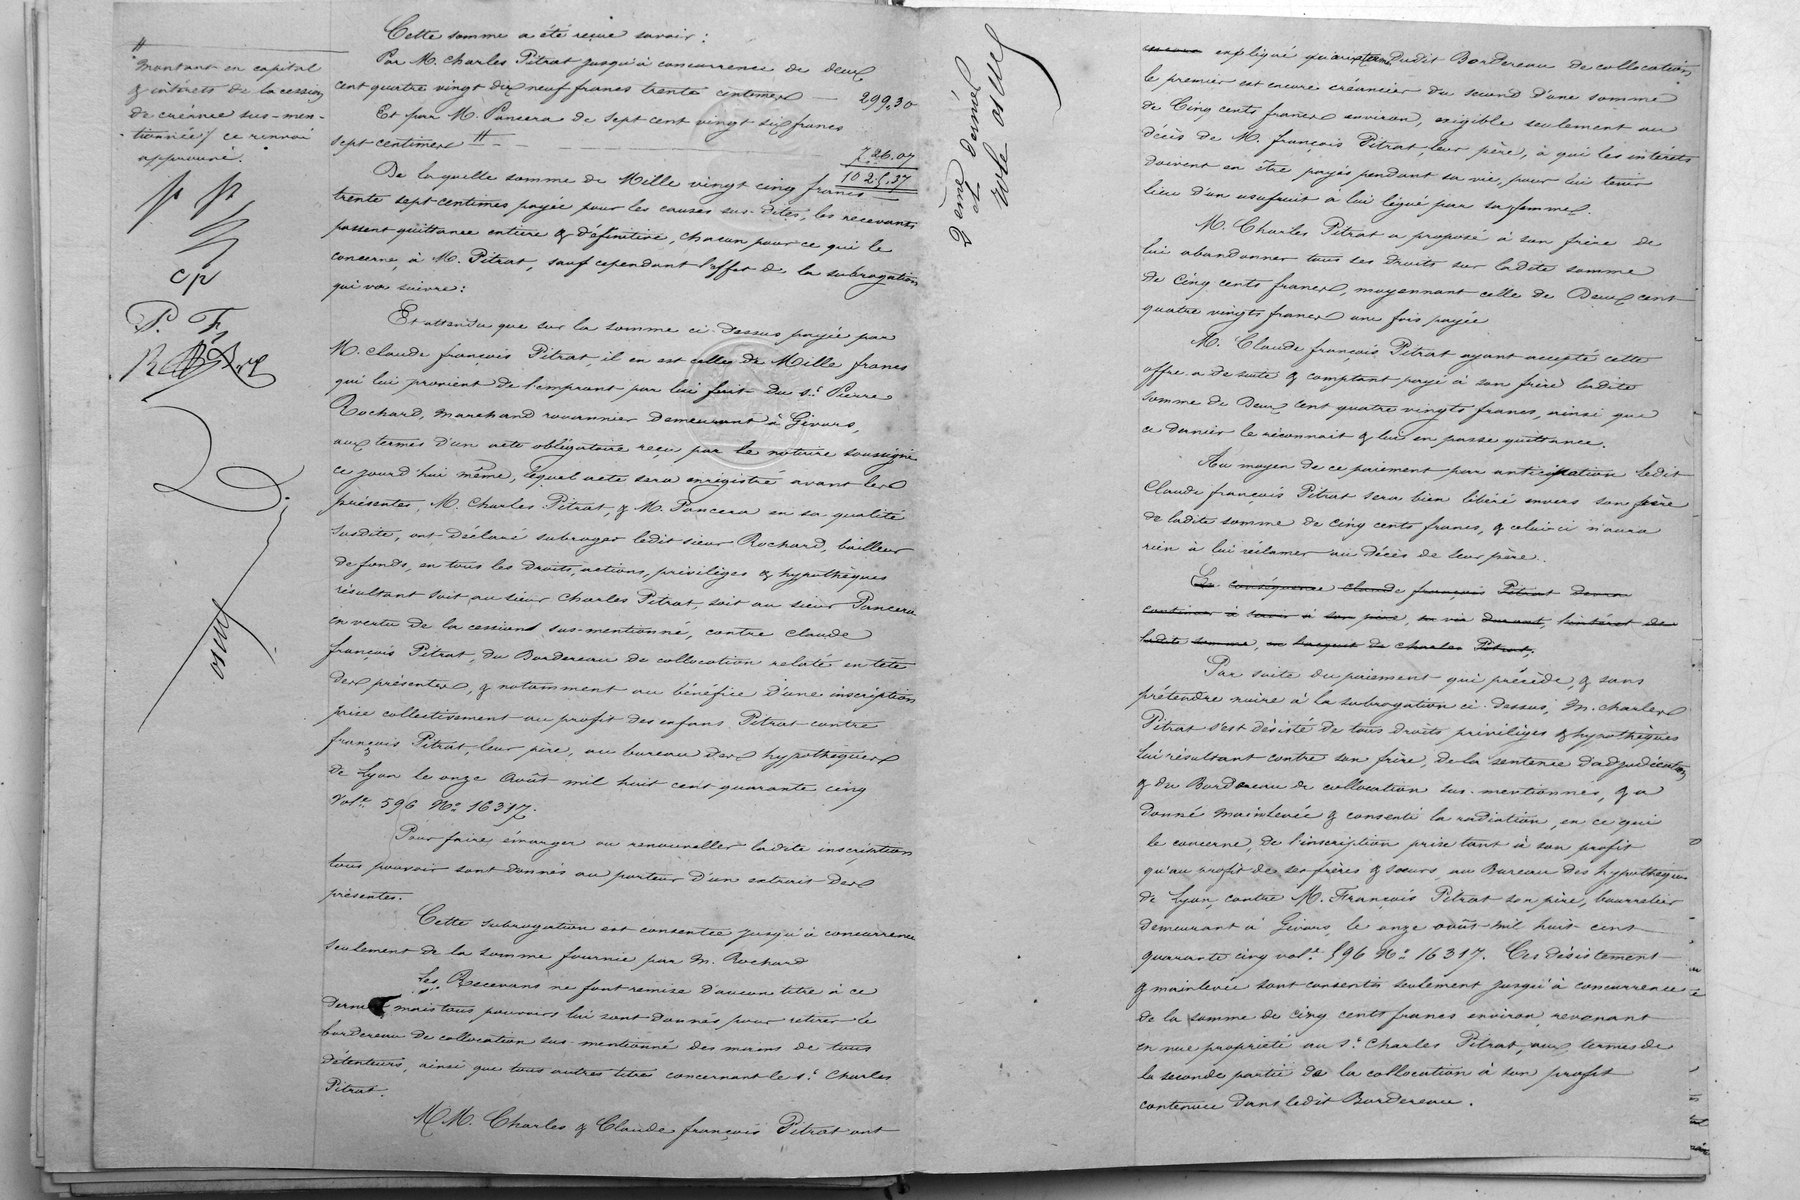 #
montant en capital
& intérêts de la cession
de créance sus-men-
-tionnée/ ce renvoi
approuvé.
cp
P. F.
Cette somme a été reçue savoir:
Par M. Charles Pitrat jusqu'à concurrence de deux
cent quatre vingt dix neuf francs trente centimes — 299,30
Et par M. Pancera de sept cent vingt six francs
sept centimes # 726.07
1025,37
De laquelle somme de Mille vingt cinq francs
trente sept centimes payée pour les causes sus-dites, les recevants
passent quittance entière & définitive, chacun pour ce qui le
concerne, à M. Pitrat, sauf cependant l'effet de la subrogation
qui va suivre:
Et attendu que sur la somme ci-dessus payée par
M. Claude françois Pitrat, il en est celle de Mille francs
qui lui provient de l'emprunt par lui fait du s.r Pierre
Rochard, marchand rouannier demeurant à Givors,
aux termes d'un acte obligatoire reçu par le notaire soussigné
ce jourd'hui même, lequel acte sera enregistré avant les
présentes, M. Charles Pitrat, & M. Pancera en sa qualité
susdite, ont déclaré subroger ledit sieur Rochard, bailleur
de fonds, en tous les droits, actions, privilèges & hypothèques
résultant soit au sieur Charles Pitrat, soit au sieur Pancera
en vertu de la cession sus-mentionné, contre Claude
françois Pitrat, du Bordereau de collocation relaté en tête
des présentes, & notamment au bénéfice d'une inscription
prise collectivement au profit des enfans Pitrat contre
françois Pitrat, leur père, au bureau des hypothèques
de Lyon le onze Août mil huit cent quarante cinq
vol.e 596 N.o 16317.
Pour faire émarger ou renouveller ladite inscription
tous pouvoirs sont donnés au porteur d'un extrait des
présentes.
Cette subrogation est consentie jusqu'à concurrence
seulement de la somme fournie par M. Rochard
Les Recevans ne font remise d'aucun titre à ce
dernier, mais tous pouvoirs lui sont donnés pour retirer le
bordereau de collocation sus-mentionné des mains de tous
détenteurs, ainsi que tous autres titres concernant le s.r Charles
Pitrat.
M.M. Charles & Claude françois Pitrat ont
2ème et dernier
rôle
expliqué qu'aux termes dudit Bordereau de collocation
le premier est encore créancier du second d'une somme
de Cinq cents francs environ, exigible seulement au
décès de M. françois Pitrat, leur père, à qui les intérêts
doivent en être payés pendant sa vie, pour lui tenir
lieu d'un usufruit à lui légué par sa femme.
M. Charles Pitrat a proposé à son frère de
lui abandonner tous ses droits sur ladite somme
de Cinq cents francs, moyennant celle de Deux cent
quatre vingts francs une fois payée
M. Claude françois Pitrat ayant accepté cette
offre a de suite & comptant payé à son frère ladite
somme de Deux cent quatre vingts francs, ainsi que
ce dernier le reconnait & lui en passe quittance.
Au moyen de ce paiement par anticipation ledit
Claude françois Pitrat sera bien libéré envers son frère
de ladite somme de Cinq cents francs, & celui-ci n'aura
rien à lui réclamer au décès de leur père.
En conséquence Claude françois Pitrat devra
continuer à servir à son père, sa vie durant, l'intérêt de
ladite somme, en l'acquit de Charles Pitrat,
Par suite du paiement qui précède, & sans
prétendre nuire à la subrogation ci-dessus, M. Charles
Pitrat s'est désisté de tous droits privilèges & hypothèques
lui résultant contre son frère, de la sentence d'adjudication
& du Bordereau de collocation sus-mentionnés, & a
donné mainlevée & consenti la radiation, en ce qui
le concerne, de l'inscription prise tant à son profit
qu'au profit de ses frères & sœurs, au Bureau des hypothèques
de Lyon, contre M. François Pitrat son père, bourrelier
demeurant à Givors, le onze août mil huit cent
quarante cinq vol.e 596 N.o 16317. Ces désistement
& mainlevée sont consentis seulement jusqu'à concurrence
de la somme de Cinq cents francs environ, revenant
en nue propriété au s.r Charles Pitrat, aux termes de
la seconde partie de la collocation à son profit
contenue dans ledit Bordereau.